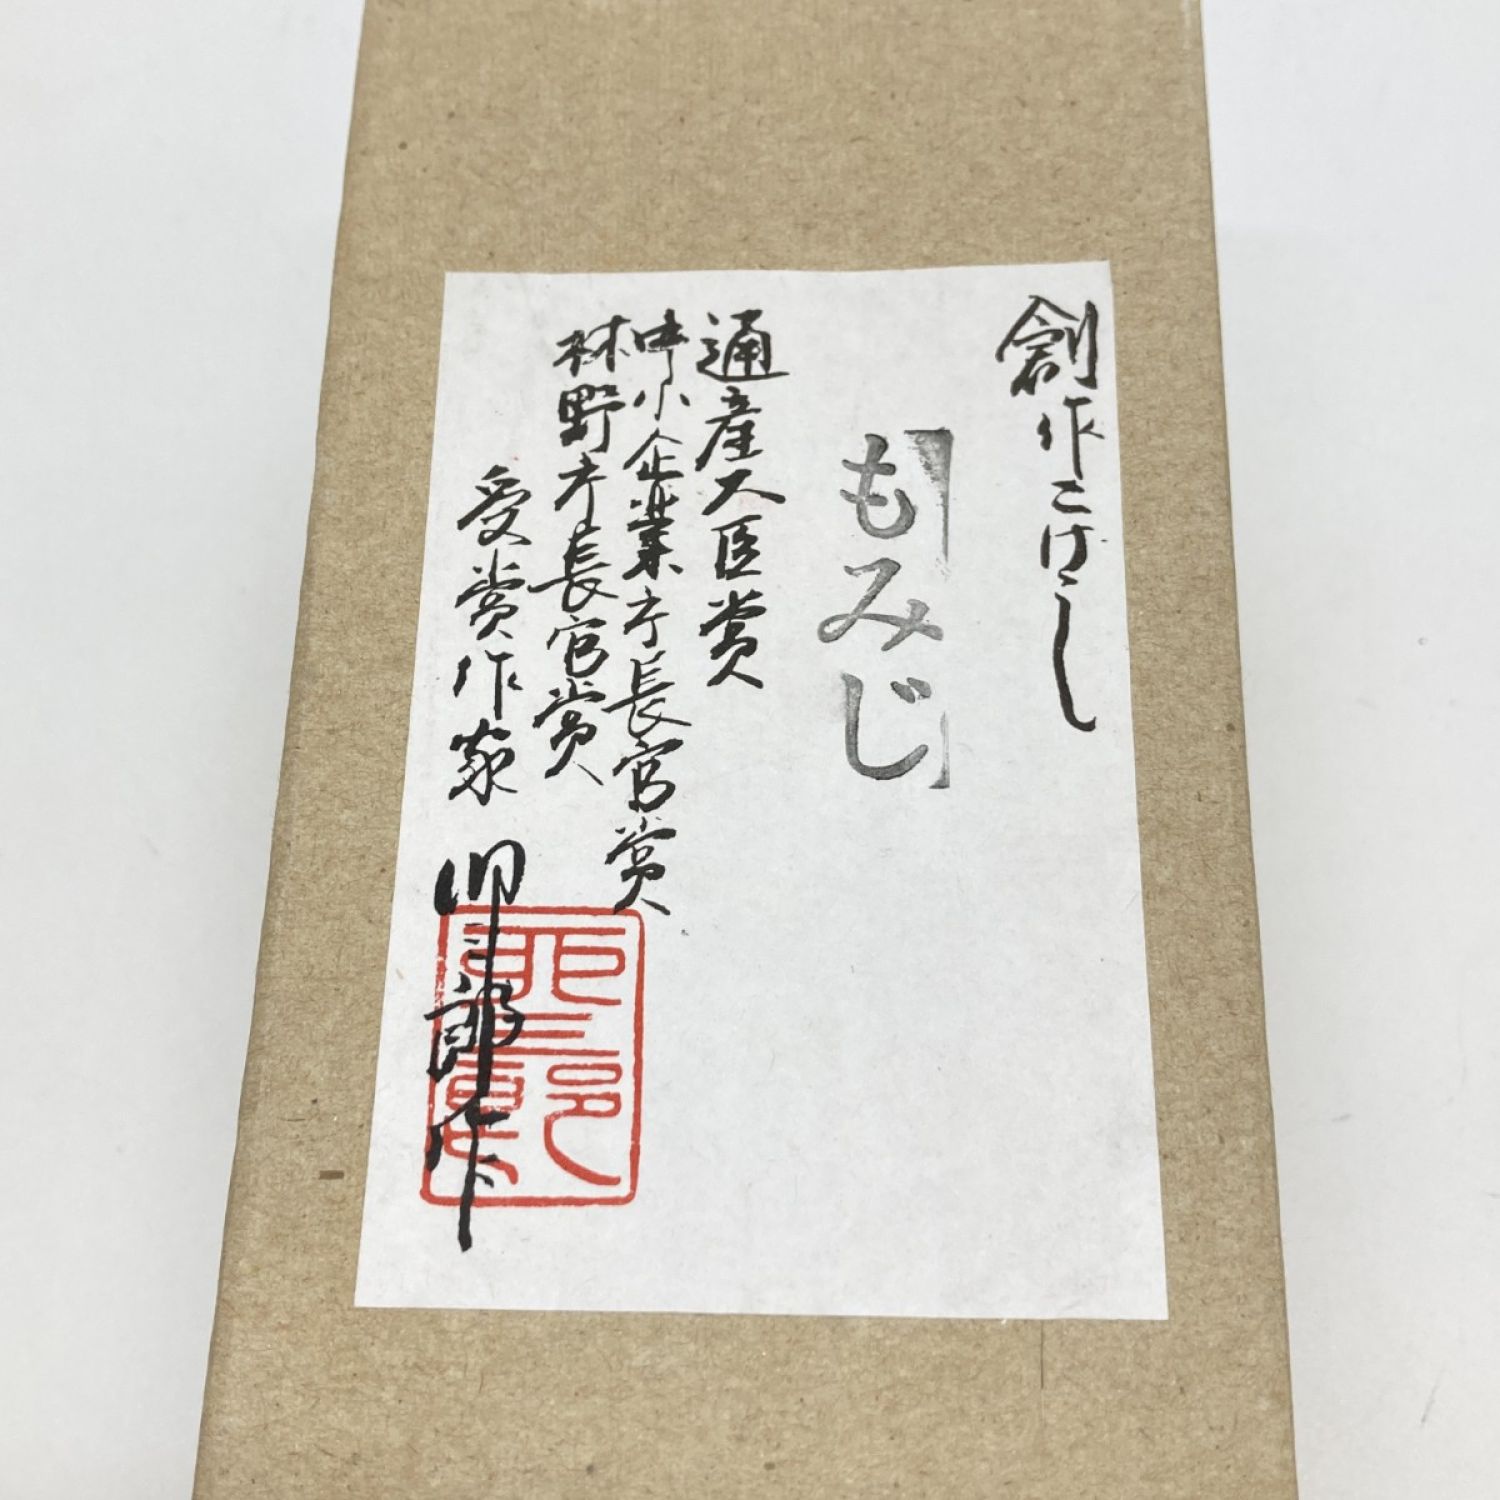 創作こけし
もみじ
通産大臣賞
中小企業庁長官賞
林野庁長官賞
受賞作家
三郎作